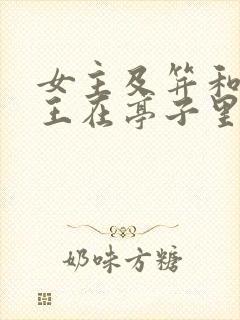 女主及笄和
王在亭子里
奶味方糖